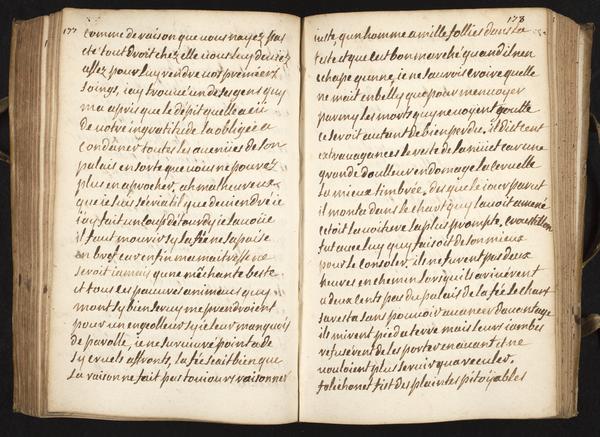 177
comme de raison que vous n'ayez pas
eté tout droit chez elle vous luy deviez
assez pour luy rendre vos premiers
soings, j'ay trouvé un de ses gens quy
m'a apris que le dépit qu'elle a eü
de votre ingratitude la obligée a
condãner touttes les aveniies de son
palais en sorte que vous ne pouvez
plus en aprocher, ah malheureux
que je suis s'écria t'il que deviendré je
j'ay fait un coup d'étourdy je l'avoüe
il faut mourir sy la fée ne s'apaise
en bref car enfin ma maitresse ne
seroit jamais qu'une méchante beste
et tous ces pauvres animaux quy
m'ont sy bien servy me prendroient
pour un engeolleur sy je leur manquois
de parolle, je ne survivré point a de
sy cruels affronts, la fée scait bien que
la raison ne fait pas toujours raisonner
178
juste, qu'un homme a mille follies dans la
teste et que c'est bon marché quand il n'en
echape qu'une, je ne sauroit croire qu'elle
ne m'ait enbelly que pour m'envoyer
parmy les morts quy ne voyent goutte
ce seroit autant de bien perdu. il dit cent
extravagances le reste de la nuit car une
grande doulleur endomage la cervelle
la mieux timbrée. des que le jour parut
il monta dans le char quy l'avoit amené
c'etoit la voiture la plus prompte.
fut avec luy quy faisoit de son mieux
pour le consoler. ils ne furent pas deux
heures en chemin lorsqu'ils arivérent
a deux cents pas du palais de la fée le char
s'aresta sans pouvoir avancer davantage
ils mirent pied a terre mais leurs jambes
refusérent de les porter en avant et ne
vouloient plus servir qu'a reculer.
folichon et fist des plaintes pitoyables